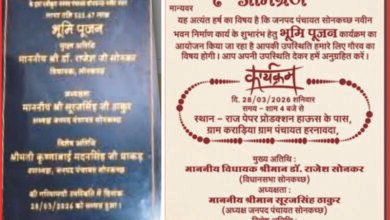 लागत राशि 585.47 लाख
भूमि पूजन
मुख्य अतिथि
माननीय श्री डॉ. राजेश सोनकर
विधायक, सोनकच्छ
अध्यक्षता
माननीय श्री सूरजसिंह ठाकुर
अध्यक्ष, जनपद पंचायत सोनकच्छ
विशेष अतिथि
श्रीमती कृष्णाबाई मदनसिंह धाकड़
उपाध्यक्ष, जनपद पंचायत सोनकच्छ
की गरिमामयी उपस्थिति में दिनांक
28/03/2026 को सम्पन्न हुआ।
आमंत्रण
मान्यवर
यह अत्यंत हर्ष का विषय है कि जनपद पंचायत सोनकच्छ नवीन
भवन निर्माण कार्य के शुभारंभ हेतु भूमि पूजन कार्यक्रम का
आयोजन किया जा रहा है आपकी उपस्थिति हमारे लिए गौरव का
विषय होगी। आप अपनी उपस्थिति देकर हमें अनुग्रहित करें।
कार्यक्रम
दि. 28/03/2026 शनिवार
समय – शाम 4 बजे से
स्थान – राज पेपर प्रोडक्शन हाऊस के पास,
ग्राम कराड़िया ग्राम पंचायत हरनावदा,
मुख्य अतिथि :
माननीय विधायक श्रीमान डॉ. राजेश सोनकर
(विधानसभा सोनकच्छ)
अध्यक्षता :
माननीय श्रीमान सूरजसिंह ठाकुर
(अध्यक्ष जनपद पंचायत सोनकच्छ)